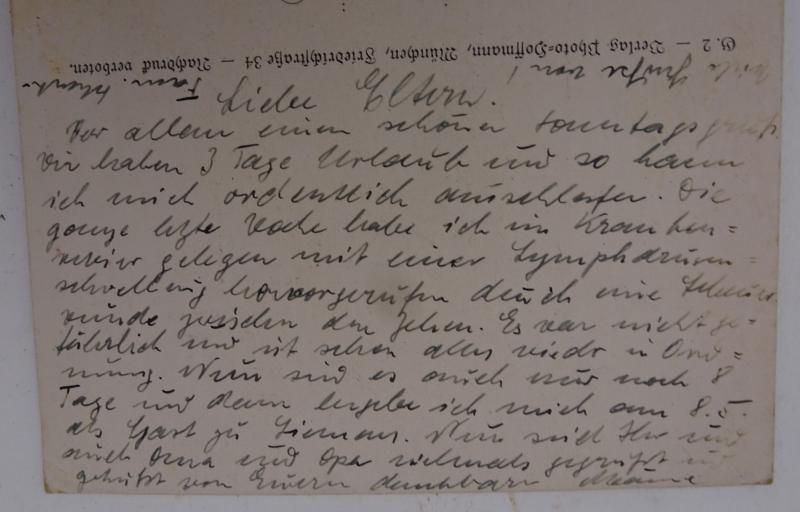 G. 2 — Verlag Photo-Hoffmann, München, Friedrichstraße 34 — Nachdruck verboten.
Viele Grüße von
Fam.
Liebe Eltern.
Vor allem einen schönen Sonntagsgruß.
Wir haben 3 Tage Urlaub und so kann
ich mich ordentlich ausschlafen. Die
ganze letzte Woche habe ich im Kranken=
revier gelegen mit einer Lymphdrüsen=
schwellung hervorgerufen durch eine
wunde zwischen den Zehen. Es war nicht ge=
fährlich und ist schon alles wieder in Ord=
nung. Nun sind es auch nur noch 8
Tage und dann begebe ich mich am 8.5.
als Gast zu Siemens. Nun seid Ihr und
auch Oma und Opa vielmals gegrüßt und
geküßt von Euerm dankbaren